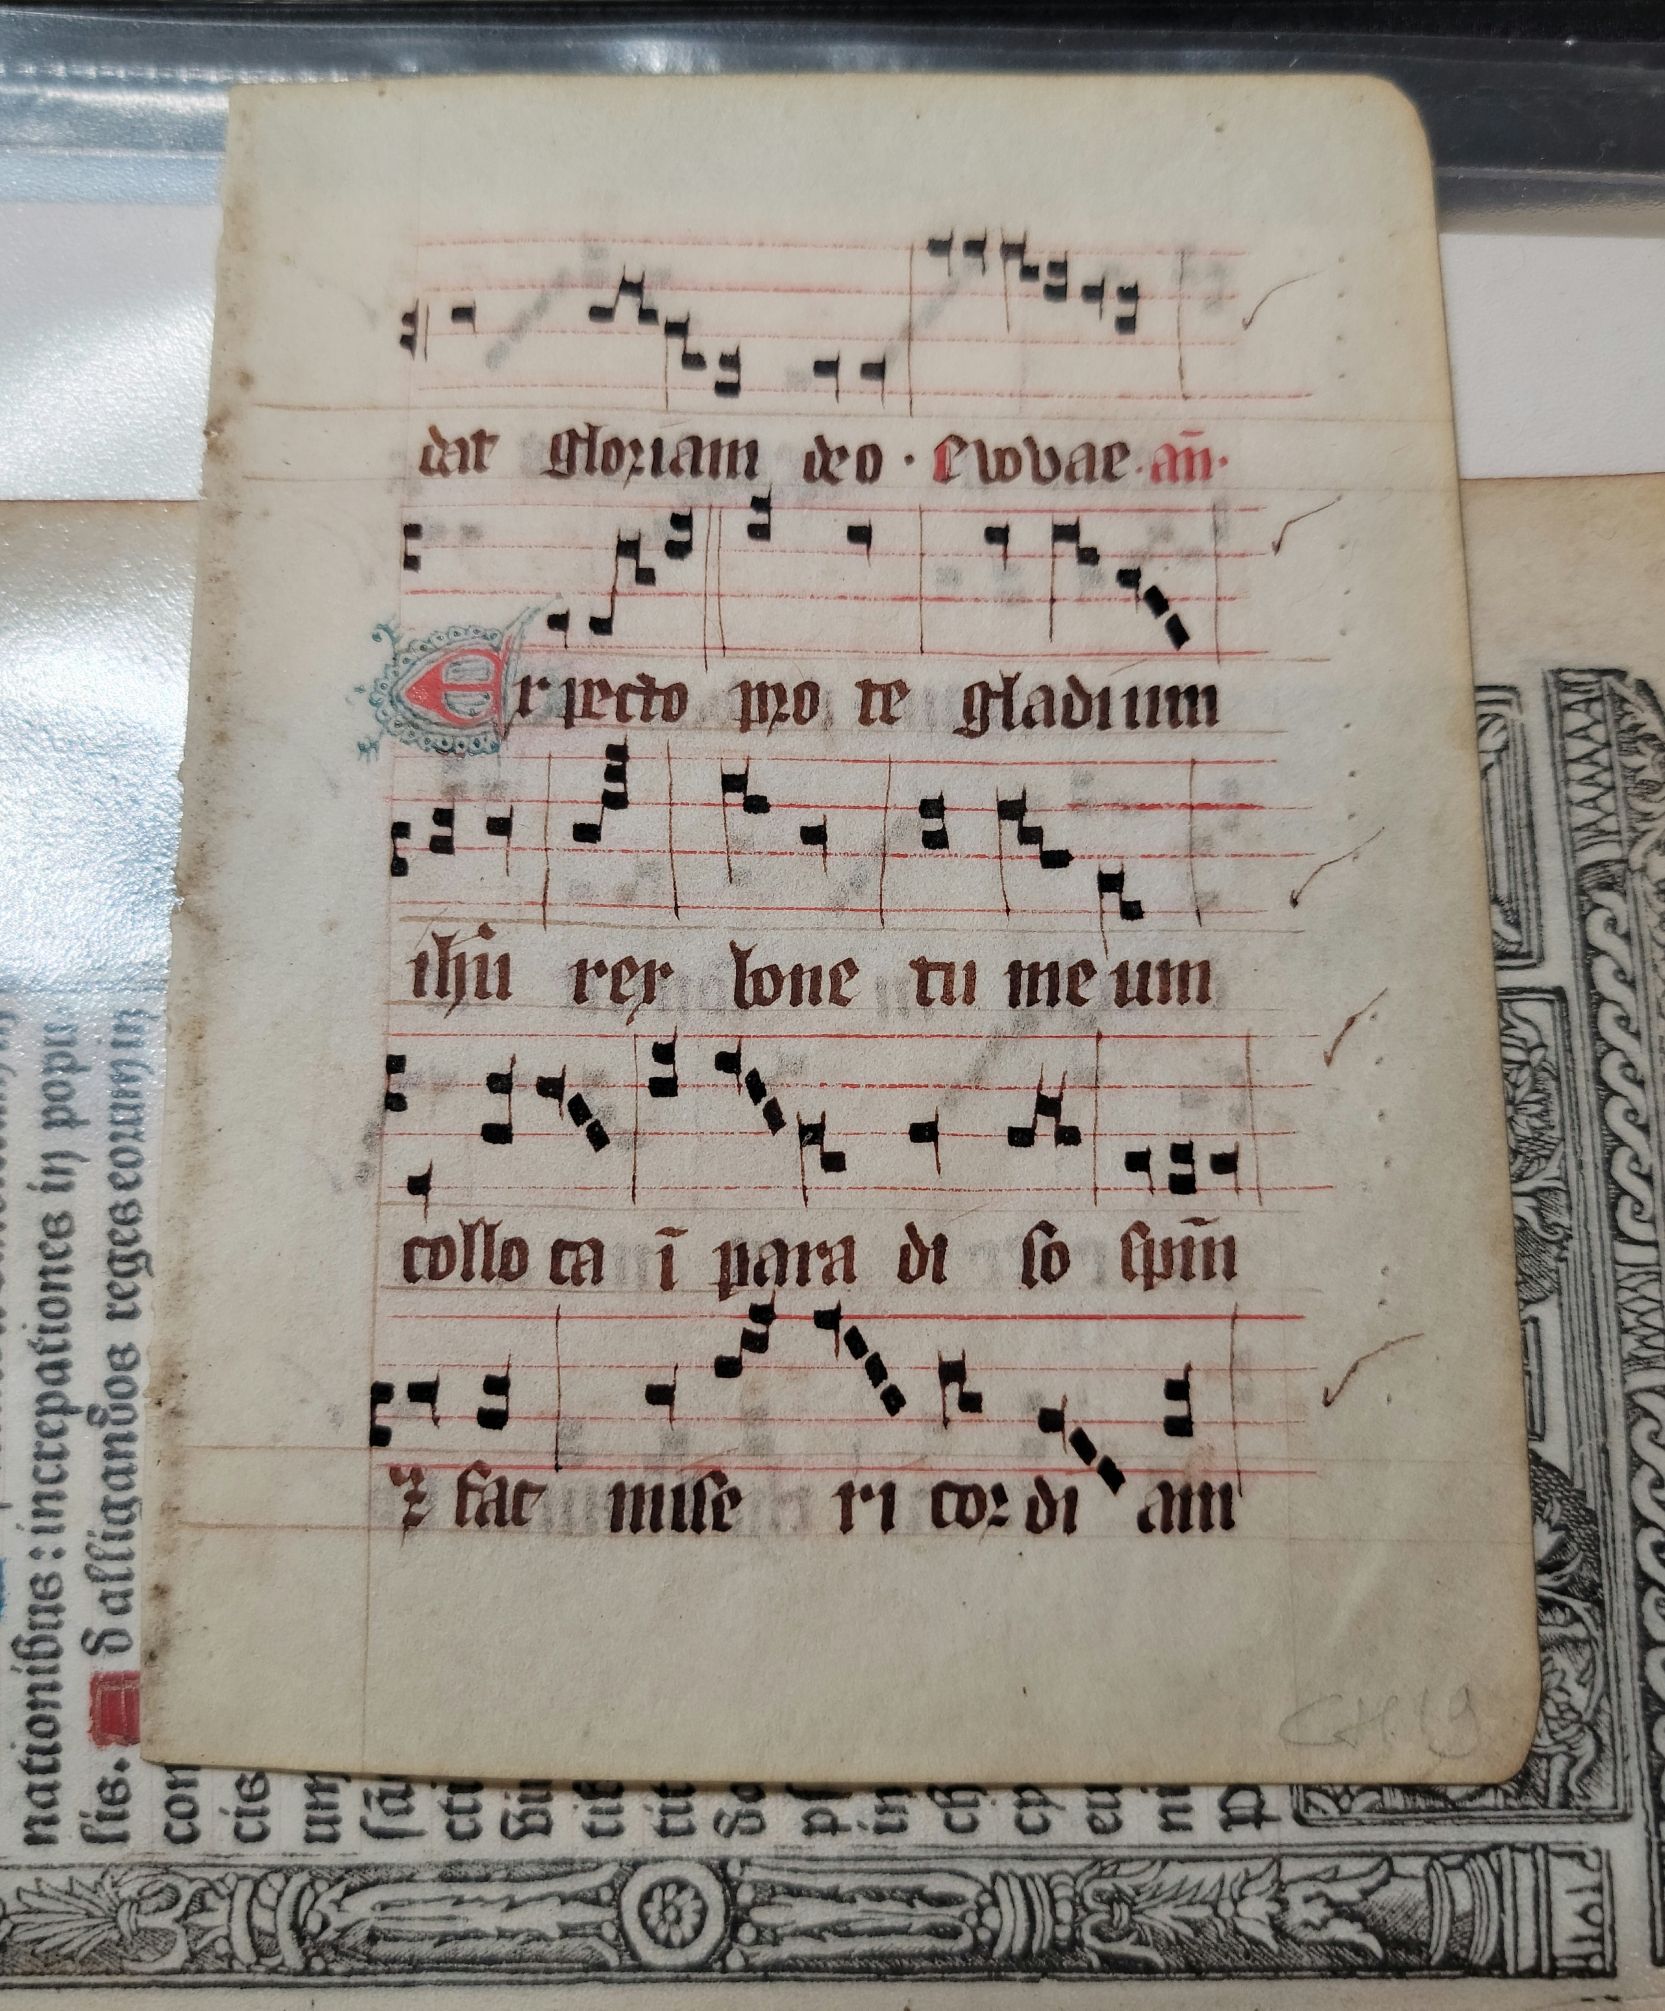 dat gloriam deo · Euouae · an̄ ·
Expecto pro te gladium
ihū rex bone tu meum
collo ca ī para di so spm̄
⁊ fac mise ri cordi am
CH 19
nationibus: increpationes in popu
lis. Ad alligandos reges eorum in